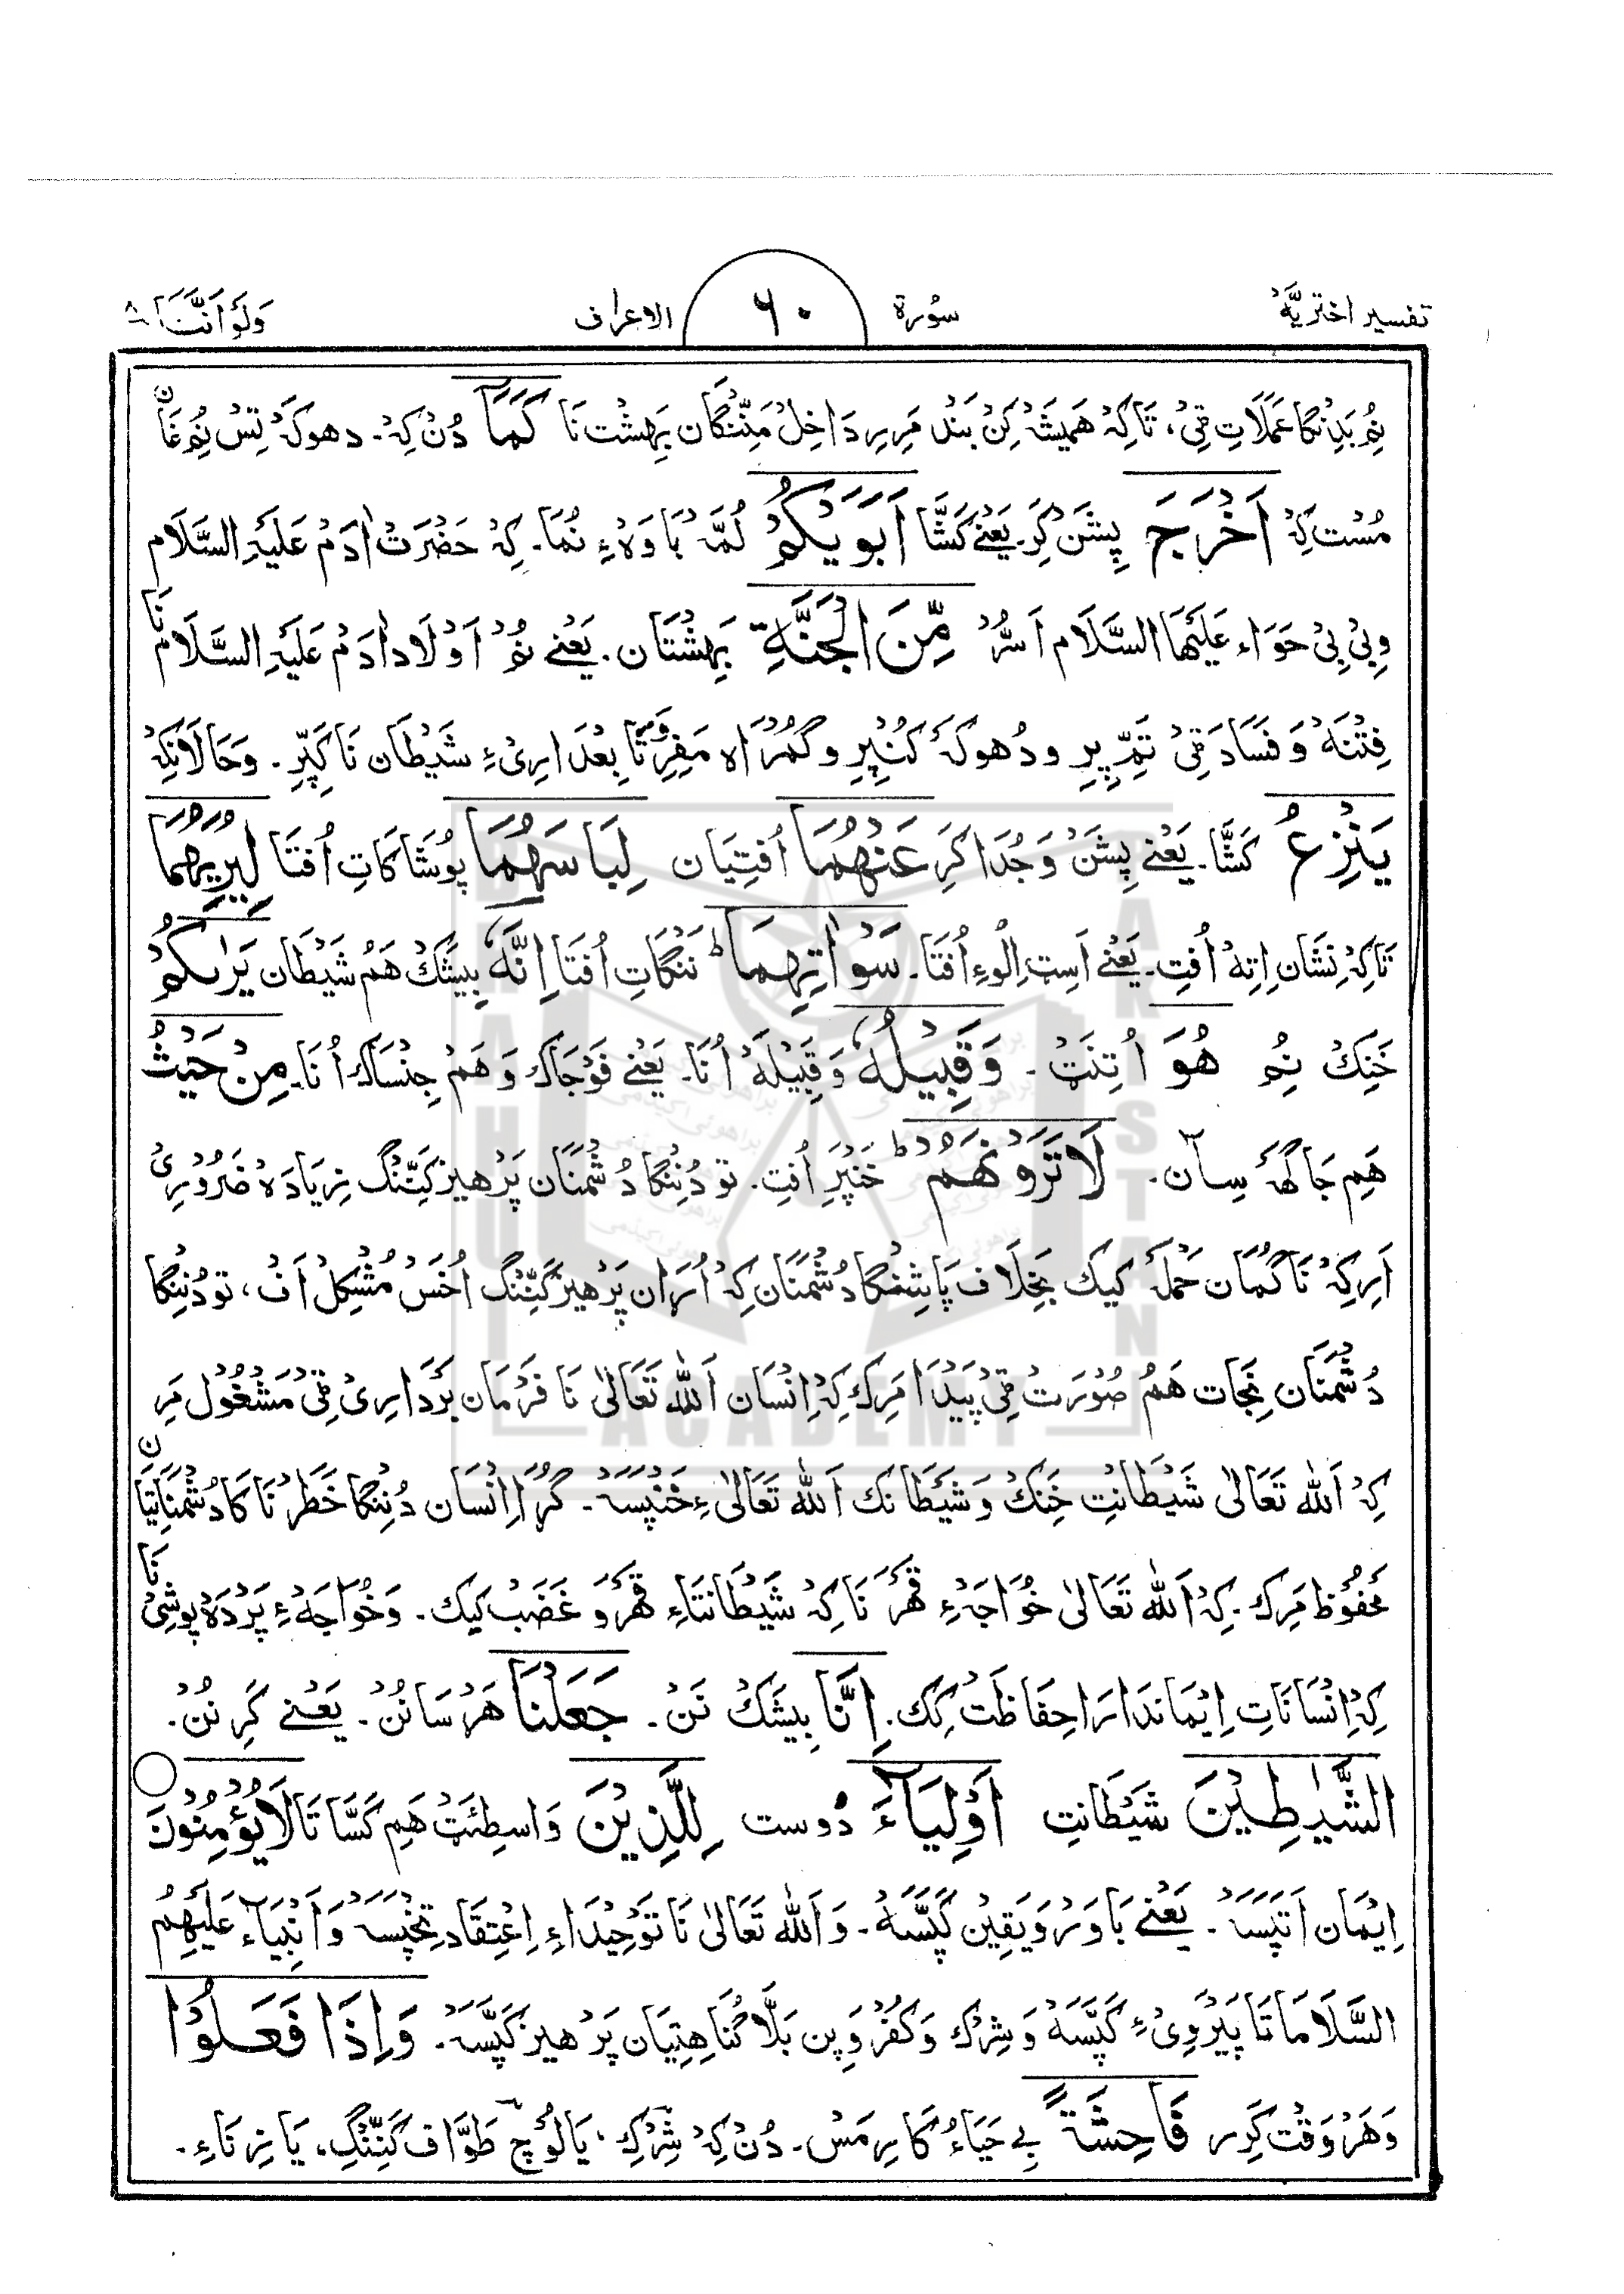 تفسیر اختریَّہ سُورۃ ۶۰ الاعراف وَلَوْاَنَّنَا ۸
نُم بَدِنْگا عَمَلَاتِ ٹِیْ، تَاکِہْ هَمیشَہْ کِنْ بَنْد مَرِیر دَاخِلْ مَنِّنْگان بَہِشْت نَا كَمَآ دُنْ کِہْ۔ دھوکَہْ تِسْ نُم غَان
مُسْت کِہْ اَخْرَجَ پِشَنْ کَرِ۔ یَعْنے کَشَّا اَبَوَيْكُمْ لُمَّہْ بَاوَہْءِ نُمَا۔ کِہْ حَضْرَتْ اٰدَمْ عَلَیْہِ السَّلَام
وبِیْ بِیْ حَوَاء عَلَیْہَا السَّلَام اَسُّرْ مِّنَ الْجَنَّةِ بَہِشْتَان۔ یَعْنے نُمْ اَوْلَاد اٰدَمْ عَلَیْہِ السَّلَام نَا
فِتْنَہْ وَ فَسَاد ٹِیْ تَمِّپِرِ ودُھوکَہْ کُنْپِرِ و گُمْرَاہ مَفِرِ وتَابِعْدَارِیْءِ شَیْطَان نَا کَپِّرِ۔ وَحَالَانِکِہْ
يَنْزِعُ کَشَّا۔ یَعْنے پِشَنْ وَ جُدَا کَرِ عَنْهُمَا اُفْتِیَان لِبَاسَهُمَا پوُشَاکَاتِ اُفْتَا لِيُرِيَهُمَا
تَاکِہْ نِشَان اِتِہْ اُفْتِ۔ یَعْنے اَسِتْ اِلْوءِ اُفْتَا۔ سَوْاٰتِهِمَا ؕ نَنْگَاتِ اُفْتَا اِنَّهٗ بِیشَکْ هَمْ شَیْطَان يَرٰىكُمْ
خَنِکْ نُم هُوَ اُتِنَتْ۔ وَقَبِيْلُهٗ وَقَبِیْلَہْ اُنَا۔ یَعْنے فَوْجَاکْ وَ هَمْ جِنْسَاکْ اُنَا۔ مِنْ حَيْثُ
هَمِ جَاگَہْ سِآن۔ لَا تَرَوْنَهُمْ ؕ خَنْپَرِ اُفْتِ۔ تو دُنِنْگا دُشْمَنَان پَرْهیز کَنِّنْگ زِیَادَہْ ضَرُورِیْ
اَرِ کِہْ نَاگُمَان حَمْلَہْ کیک بَخِلَاف پَاشِفَنْگا دُشْمَنَان کِہْ اُرَان پَرْهیز کَنِّنْگ اُخَسْ مُشْکِلْ اَفْ، تو دُنِنْگا
دُشْمَنَان نِجَات هَمْ صُوْرَتْ ٹِیْ پَیْدَا مَرِک کِہْ اِنْسَان اَللّٰہ تَعَالٰی نَا فَرْمَان بَرْدَارِیْ ٹِیْ مَشْغُوْل مَرِ
کِہْ اَللّٰہ تَعَالٰی شَیْطَانتِ خَنِکْ وَ شَیْطَانک اَللّٰہ تَعَالٰیءِ خَنْپَسَہْ۔ گُڑَا اِنْسَان دُنِنْگا خَطَرْنَاکَا دُشْمَنَاتِیَان
مَحْفُوْظ مَرِک۔ کِہْ اَللّٰہ تَعَالٰی خُوَاجَہْءِ قَہْرْ نَا کِہْ شَیْطَانتَاءِ قَہْرْ وَ غَضَبْ کیک۔ وَخُوَاجَہْءِ پَرْدَہْ پوشِیْ نَا
کِہْ اِنْسَانَاتِ اِیْمَاندَارَا حِفَاظَتْ کِکْ۔ اِنَّا بیشَکْ نَنْ۔ جَعَلْنَا هَرْسَانُنْ۔ یَعْنے کَرِنُنْ۔
الشَّيٰطِيْنَ شَیْطَانتِ اَوْلِيَآءَ دُوست لِلَّذِيْنَ وَاسِطَئَتْ هَمِ کَسَّاتَا لَا يُؤْمِنُوْنَ
اِیْمَان اَتَپَسَہْ۔ یَعْنے بَاوَرْ وَیَقِیْن کَپَّسَہْ۔ وَ اَللّٰہ تَعَالٰی نَا تَوْحِیْدَاءِ اِعْتِقَاد تِخْپَسَہْ وَ اَنْبِیَآءْ عَلَیْہِمُ
السَّلَامَاتَا پَیْرْوِیْءِ کَپَّسَہْ وَ شِرْک وَ کُفْرْ وَ پِن بَلَّا گُنَاہِتِیَان پَرْهیز کَپَّسَہْ۔ وَاِذَا فَعَلُوْا
وَهَرْ وَقْتْ کَرِر فَاحِشَةً بے حَیَاءُ کَارِمَسْ۔ دُنْ کِہْ شِرْکِ، یَا لُوْچْ طَوَّاف کَنِّنْگ، یَا زِنَاءِ۔
BRAHUI ACADEMY